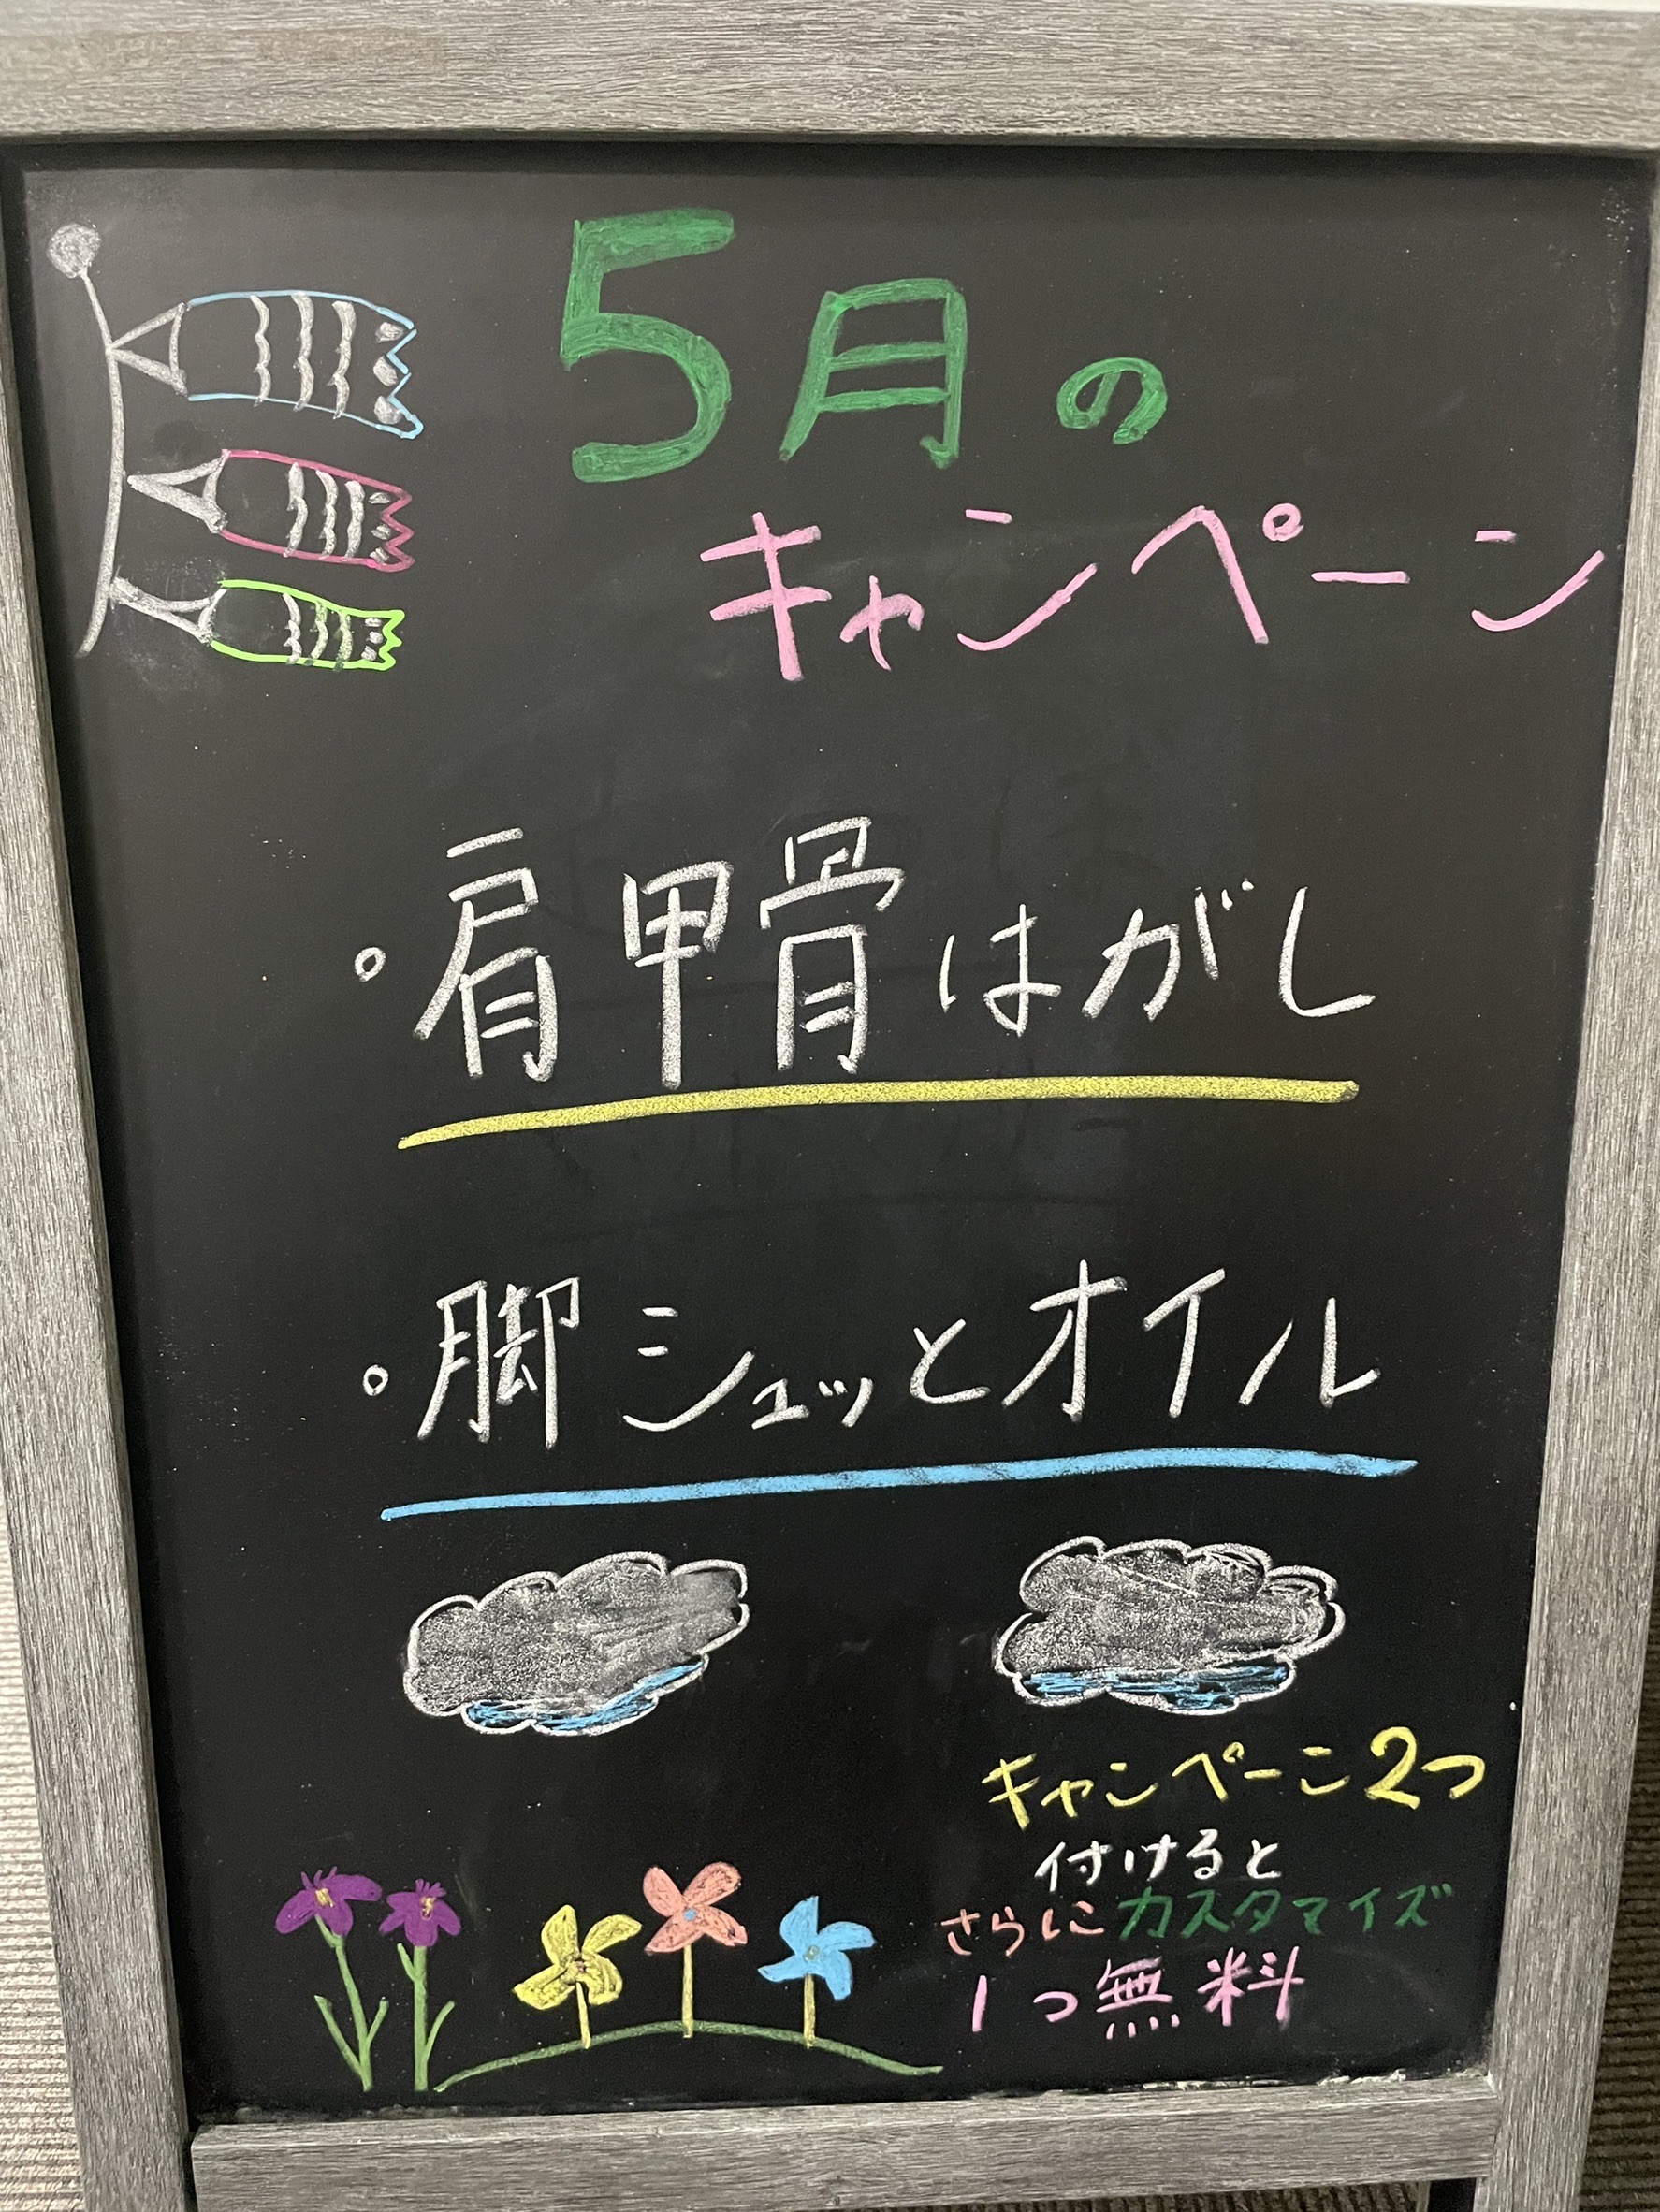 5月の
キャンペーン
。肩甲骨はがし
。脚シュッとオイル
キャンペーン2つ
付けると
さらにカスタマイズ
1つ無料